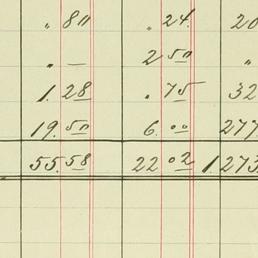 „ 80 „ 24. 20
„ — 2 50 „
1. 28 „ 75 32
19. 50 6. 00 277
55. 58 22 02 1.273